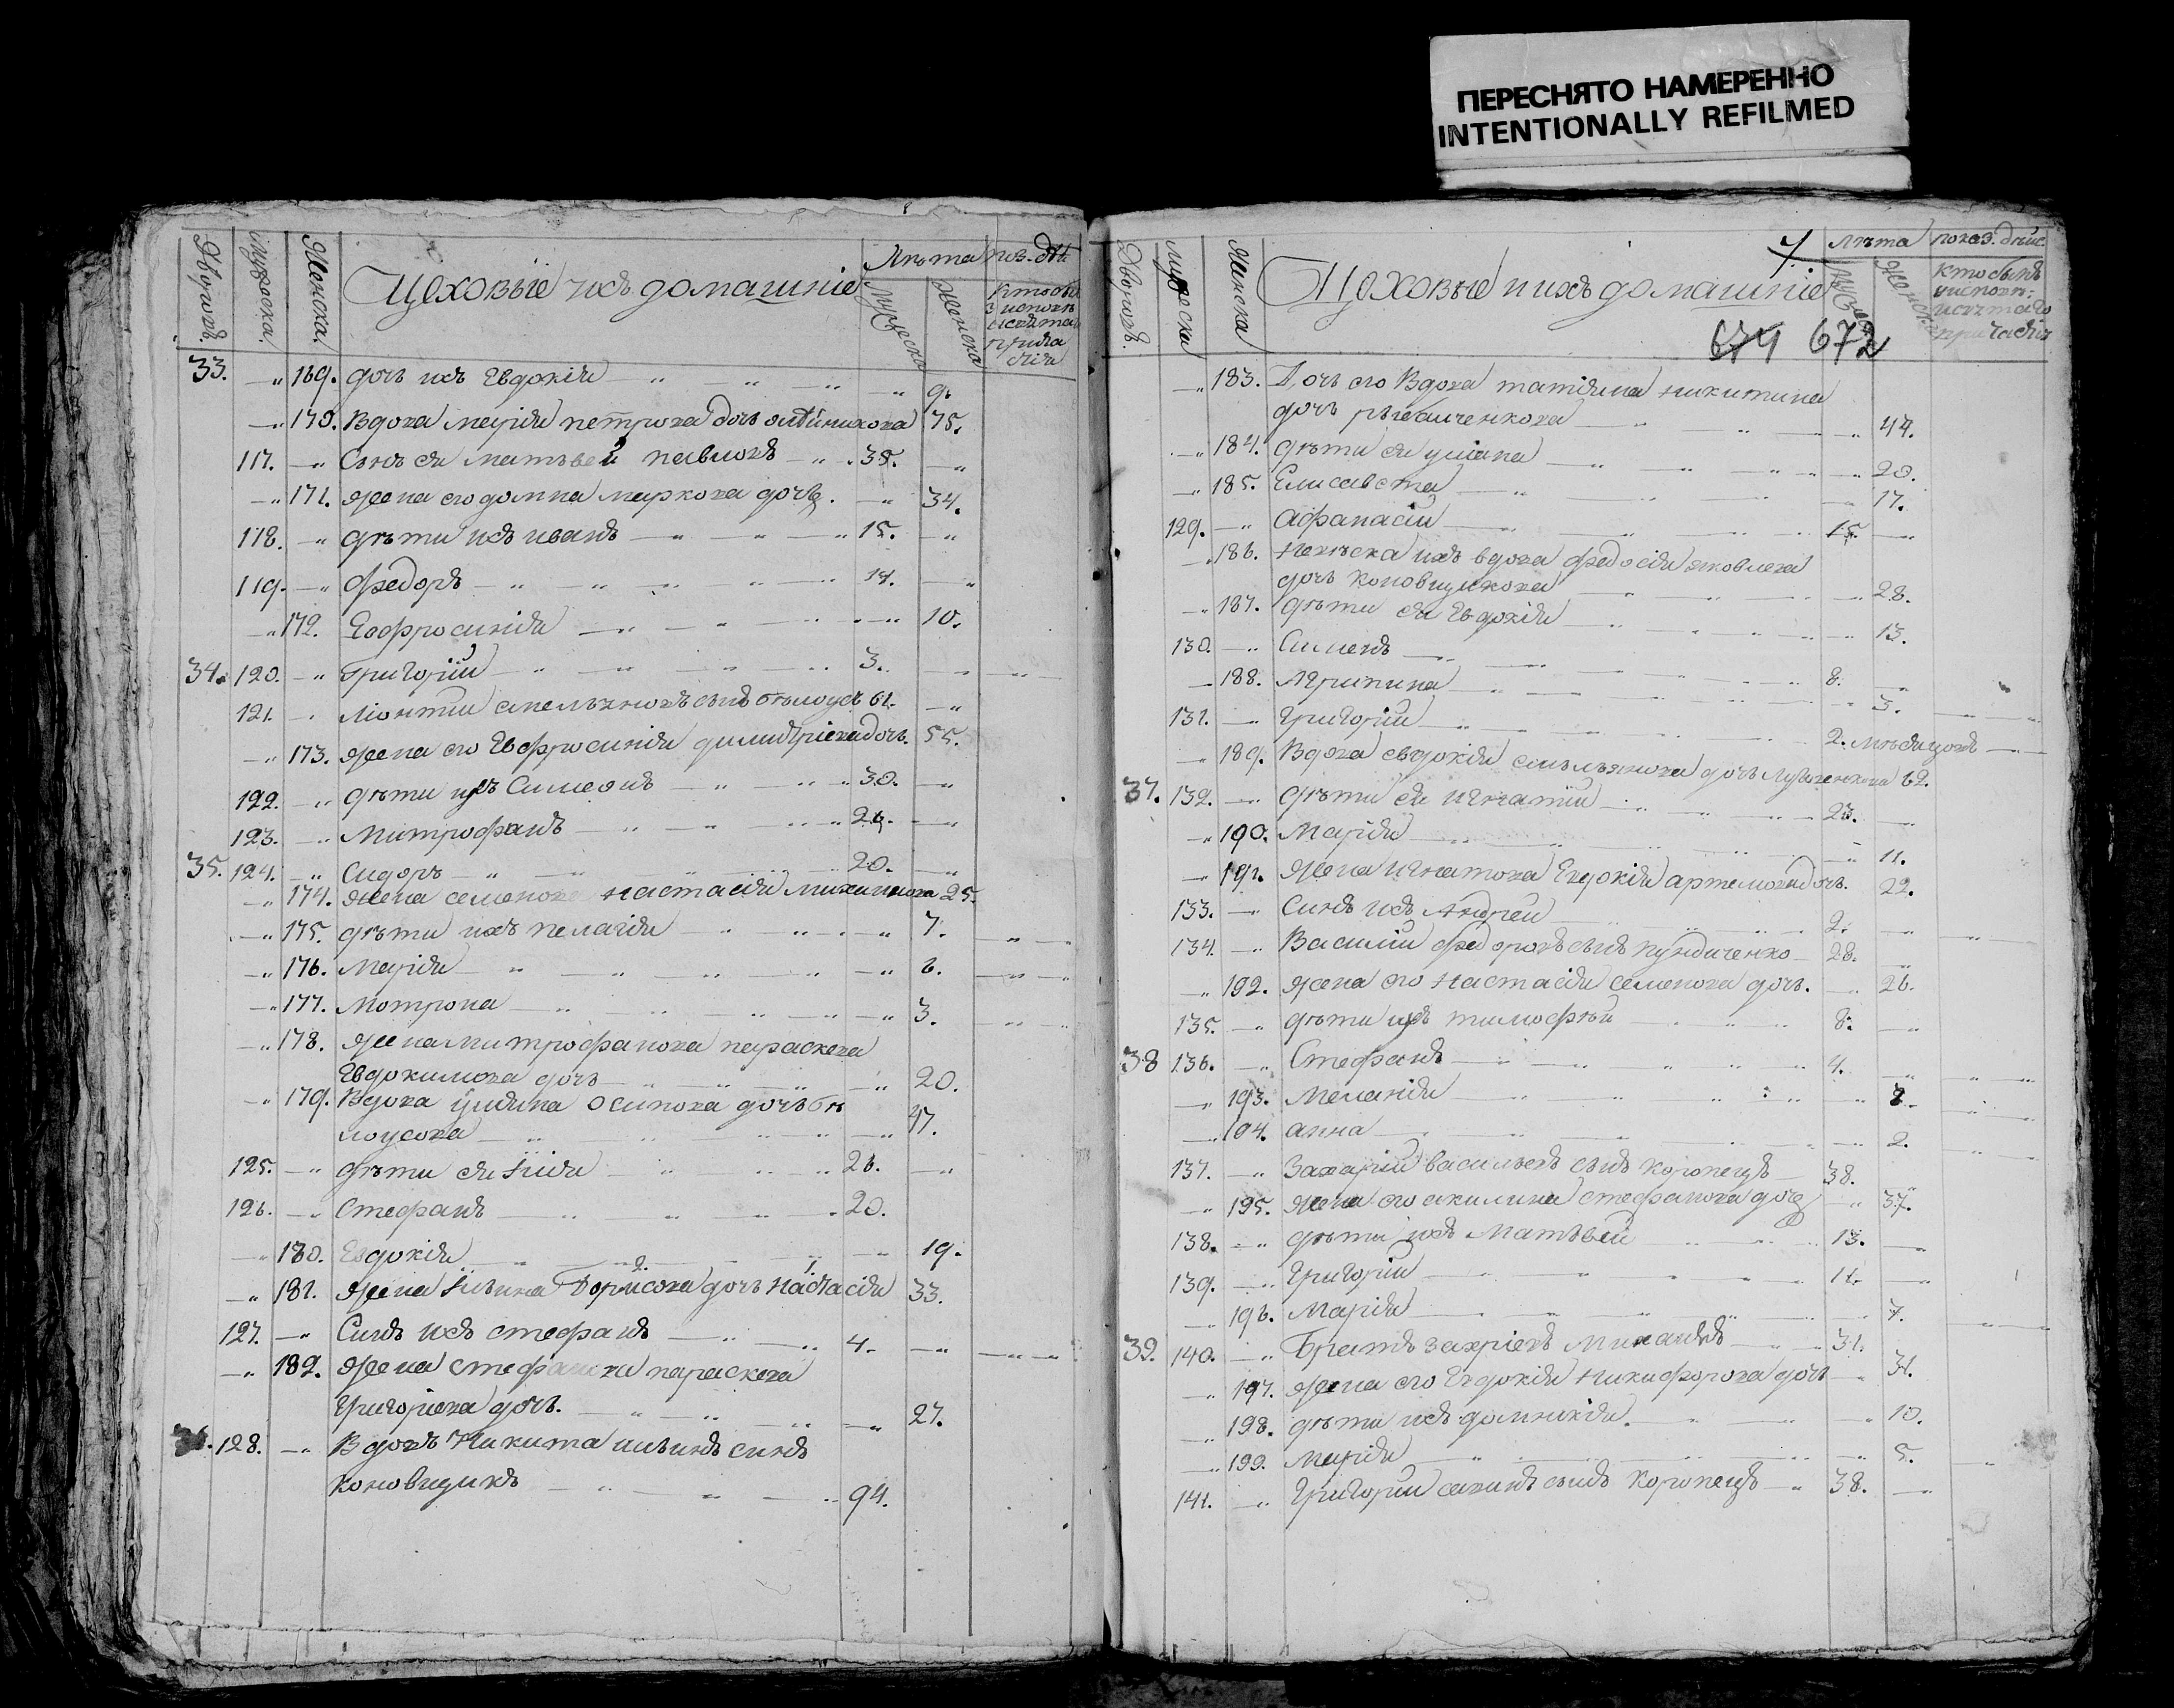 ПЕРЕСНЯТО НАМЕРЕННО
INTENTIONALLY REFILMED
Дворовъ. Мужеска. Женска. Цеховые ихъ домашніе Лѣта Мужеска Женска
33. 169. дочь ихъ Евдокія 9.
170. Вдова марія петрова дочь 75.
117. Сынъ ея матѳвей павловъ 38.
171. Жена его домна маркова дочь. 34.
118. дѣти ихъ иванъ 15.
119. Федоръ 14.
172. Евфросинія 10.
34. 120. Григорій 3.
121. Ліонтій емельяновъ сынъ бѣлоусъ 61.
173. Жена его Евфросинія димитріева дочь. 55.
122. дѣти ихъ Симеонъ 30.
123. Митрофанъ 24.
35. 124. Сидоръ 20.
174. Жена семенова настасія 25.
175. дѣти ихъ пелагія 7.
176. Марія 6.
177. Мотрона 3.
178. Жена митрофанова параскева
Евдокимова дочь 20.
179. Вдова уліяна осипова дочь бѣ
лоусова 47.
125. дѣти ея Илія 26.
126. Стефанъ 20.
180. Евдокія 19.
181. Жена Ильина Борисова дочь настасія 33.
127. Синъ ихъ стефанъ 4.
182. Жена стефанова параскева
Григоріева дочь. 27.
36. 128. Вдовъ Никита ильинъ синъ
коновщикъ 94.
Дворовъ. Мужеска Женска Цеховые и ихъ домашніе лѣта показ. дѣйс.
Кто былъ
у исповѣ:
и святаго
причастія
674 672
183. Дочь его вдова татіяна никитина
дочь 44.
184. дѣти ея уліана 20.
185. Елисавета 17.
129. Афанасій 15.
186. невѣска ихъ вдова федосія яковлева
дочь коновщикова 28.
187. дѣти ея Евдокія 13.
130. Сименъ
188. Агрипина 8.
131. Григорій 3.
2. мѣсяцовъ
189. Вдова евдокія емельянова дочь 62.
37. 132. дѣти ея игнатій 23.
190. Марія 11.
191. Жена игнатова Евдокія артемова дочь. 22.
133. Синъ ихъ Андрей 2.
134. Василій федоровъ сынъ кундиченко 28.
192. Жена его настасія семенова дочь. 26.
135. дѣти ихъ тимофѣй 8.
38 136. Стефанъ 4.
193. Меланія 7.
194. анна 2.
137. Захарій васильевъ сынъ коропецъ 38.
195. Жена его акилина стефанова дочь 37.
138. дѣти ихъ Матѳвей 13.
139. Григорій 11.
196. Марія 7.
39. 140. Братъ захріевъ Михаилъ 31.
197. Жена его Евдокія никифорова дочь 31.
198. дѣти ихъ домникія. 10.
199. Марія 5.
141. Григорій савинъ сынъ коропецъ 38.